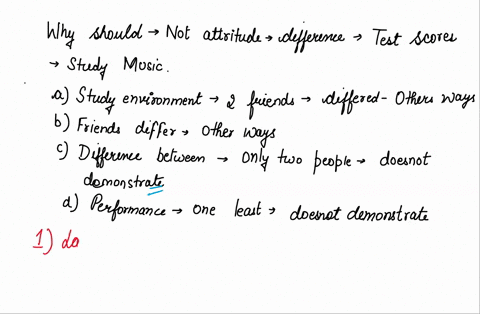 Why should → Not attritude → difference → Test scores
→ Study Music.
a) Study environment → 2 friends → differed - Others ways
b) Friends differ → other ways
c) Difference between → only two people → doesnot
domonstrate
d) Performance → one least → doesnot demonstrate
1) do